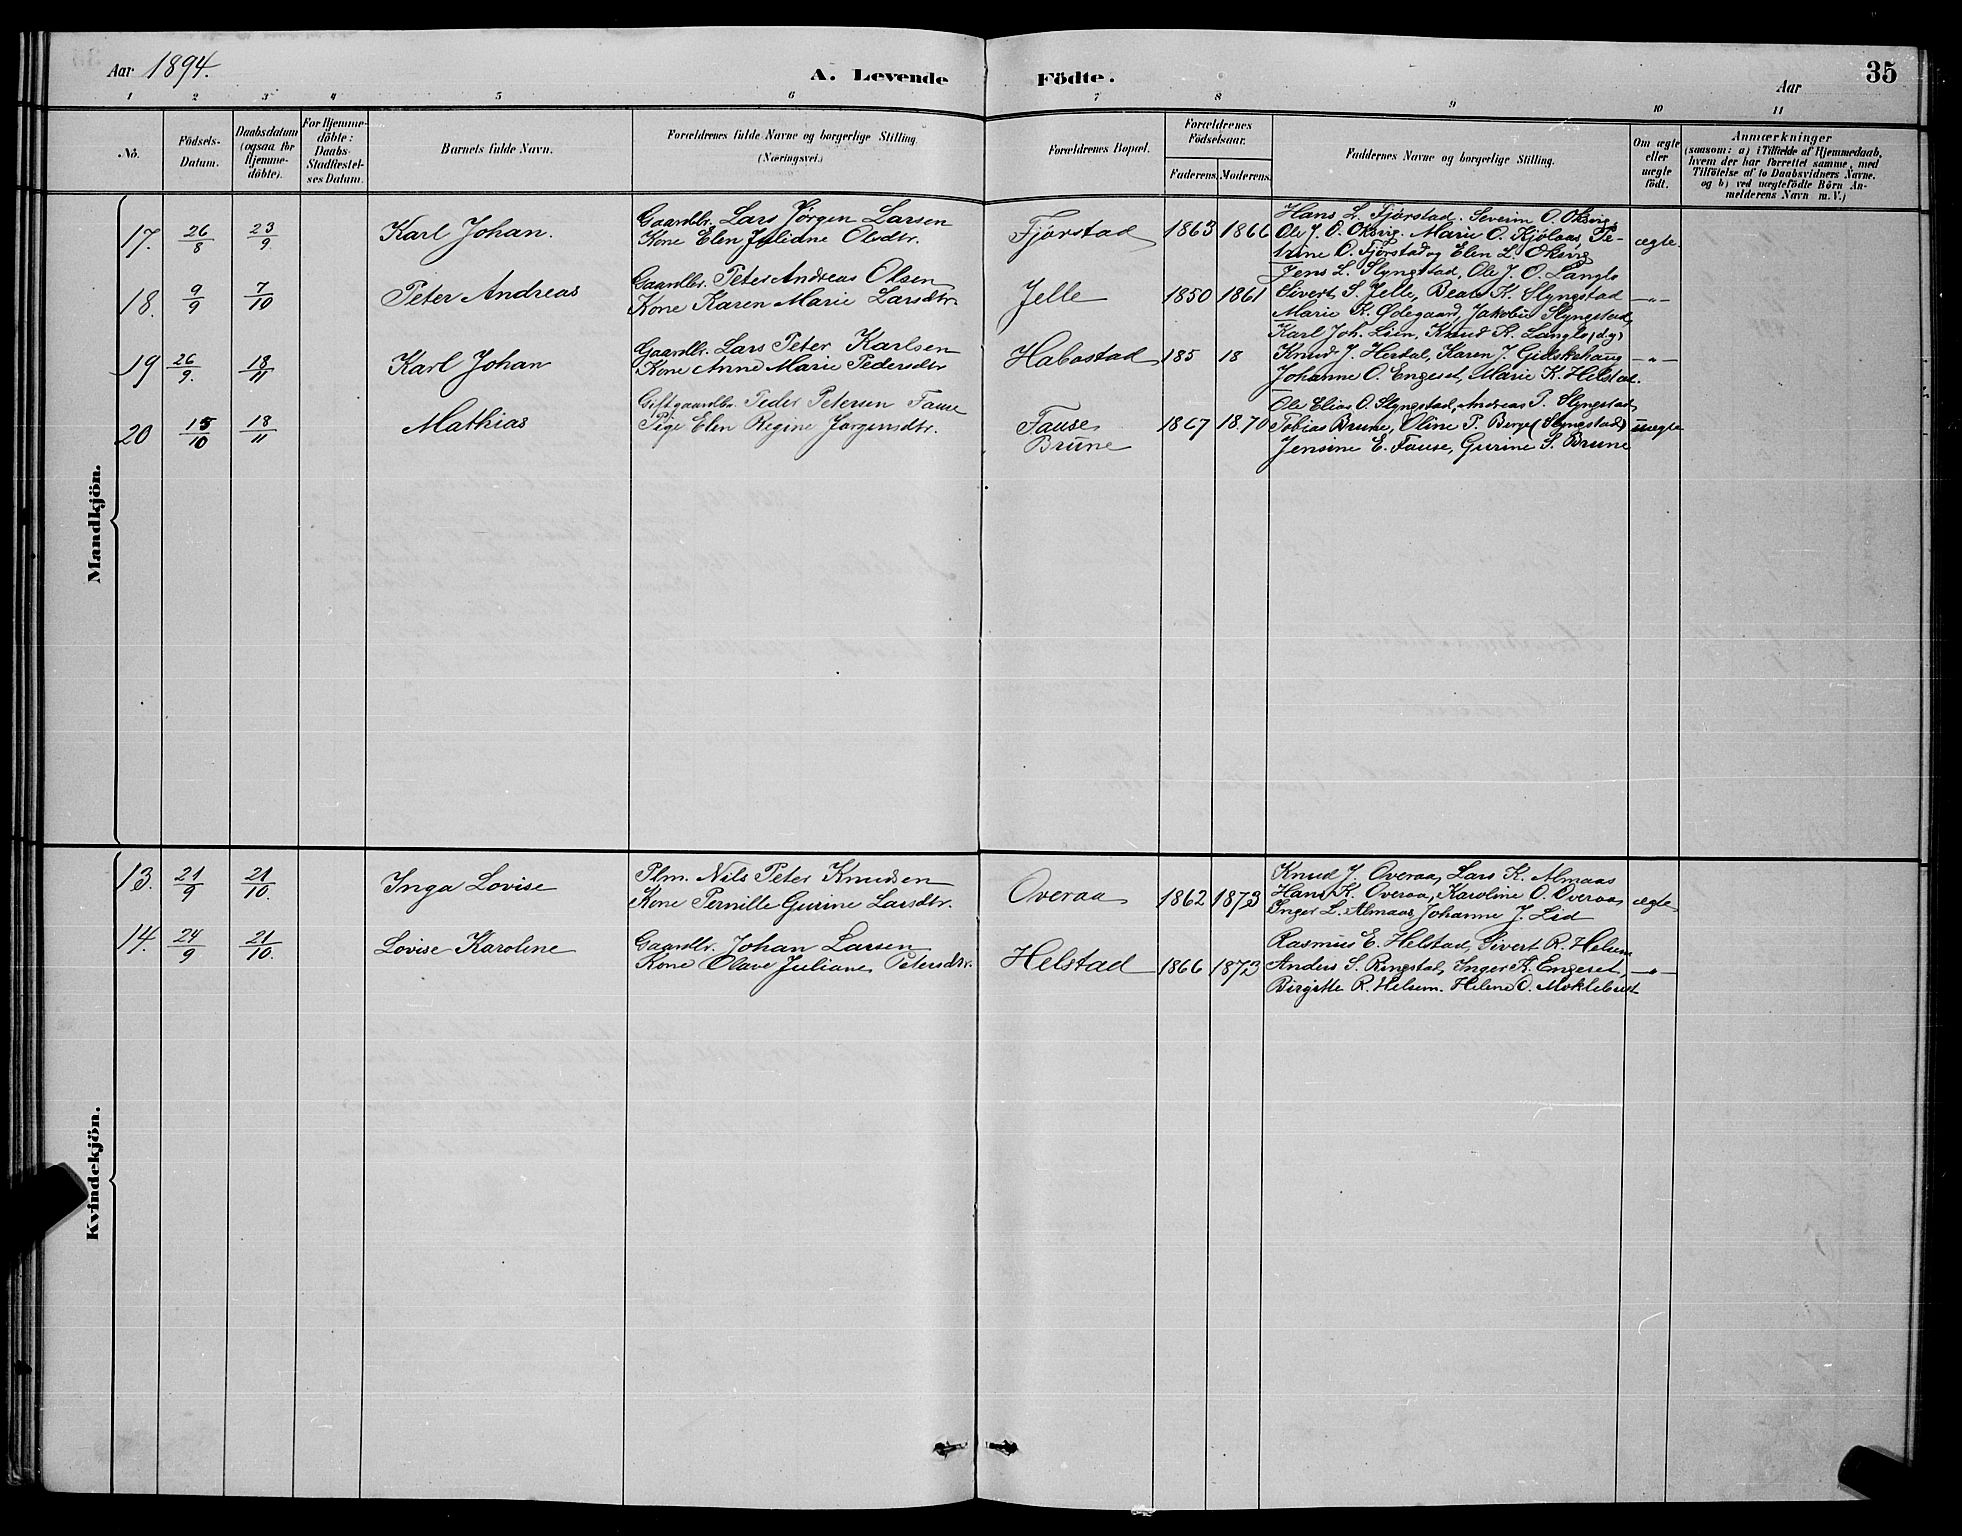 Aar 1894.
A. Levende Födte.
Aar
35
1 2 3 4 5 6 7 8 9 10 11
No.
Födsels-
Datum.
Daabsdatum
(ogsaa for
Hjemme-
döbte).
For Hjemme-
döbte:
Daabs-
Stadfæstel-
ses Datum.
Barnets fulde Navn.
Forældrenes fulde Navne og borgerlige Stilling.
(Næringsvei.)
Forældrenes Bopæl.
Forældrenes
Födselsaar.
Faderens. Moderens.
Faddernes Navne og borgerlige Stilling.
Om ægte
eller
uægte
födt.
Anmærkninger
(saasom: a) i Tilfælde af Hjemmedaab,
hvem der har forrettet samme, med
Tilföielse af to Daabsvidners Navne.
og b) ved uægtefödte Börn An-
melderens Navn m. V.)
Mandkjön.
17. 26/8 23/9 Karl Johan.
Gaardbr. Lars Jørgen Larsen
Kone Elen Juliane Olsdtr.
Fjørstad 1863 1866
Hans L. Fjørstad. Severin O. Oksvig,
Ole J. O. Oksvig. Marie O. Kjølaas, Pe-
trine O. Fjørstad og Elen L. Oksvig
ægte.
18. 9/9 7/10 Peter Andreas
Gaardbr. Peter Andreas Olsen
Kone Karen Marie Larsdtr.
Jelle 1850 1861
Jens L. Slyngstad, Ole J. O. Langlo
Sivert S. Jelle, Beate K. Slyngstad
Marie K. Ødegaard, Jakobie Slyngstad,
—"—
19 26/9. 18/11 Karl Johan
Gaardbr. Lars Peter Karlsen
Kone Anne Marie Pedersdtr
Habostad 185 18
Karl Joh. Lien, Knud K. Langlo (dg)
Knud J. Herdal, Karen J. Gidskehaug
Johanne O. Engeset, Marie K. Helstad.
—"—
20 15/10 18/11 Mathias
Gift gaardbr. Peder Petersen Fause
Pige Elen Regine Jørgensdtr.
Fause
Brune
1867 1870
Ole Elias O. Slyngstad, Andreas P. Slyngstad
Tobias Brune, Oline P. Berge (Slyngstad)
Jensine E. Fause, Gurine S. Brune
uægte
Kvindekjön.
13. 21/9 21/10. Inga Lovise
Plm. Nils Peter Knudsen
Kone Pernille Gurine Larsdtr.
Overaa 1862 1873
Knud J. Overaa, Lars K. Almaas
Hans K. Overaa, Karoline O. Overaa
Inger L. Almaas Johanne J. Lid
ægte
14. 24/9 21/10. Lovise Karoline
Gaardbr. Johan Larsen
Kone Olave Juliane Petersdtr.
Helstad 1866 1873
Rasmus E. Helstad, Sivert R. Helsem
Anders S. Ringstad, Inger K. Engeset,
Birgitte R. Helsem. Helene O. Moklebust
—"—